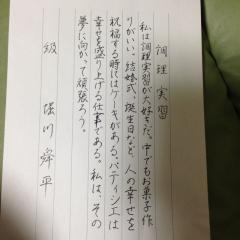 調理実習
私は調理実習が大好きだ。中でもお菓子作
りがいい。結婚式、誕生日など、人の幸せを
祝福する時にはケーキがある。パティシエは
幸せを盛り上げる仕事である。私は、その
夢に向かって頑張ろう。
級 堀川舜平